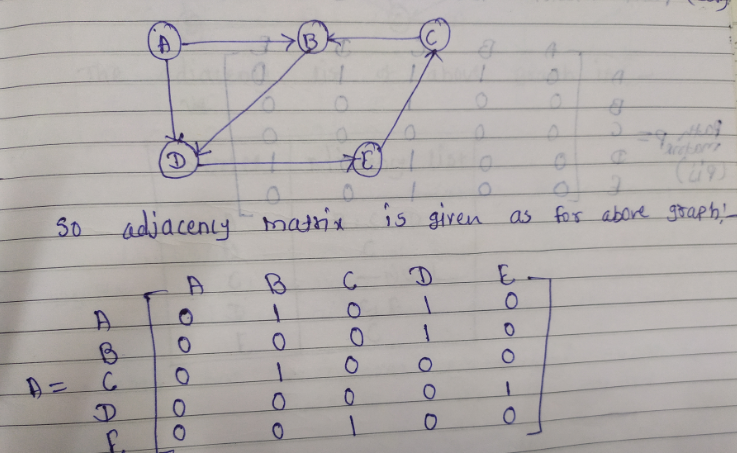 A B C
D E
So adjacency matrix is given as for above graph:-
A B C D E
A 0 1 0 1 0
B 0 0 0 1 0
A = C 0 1 0 0 0
D 0 0 0 0 1
E 0 0 1 0 0